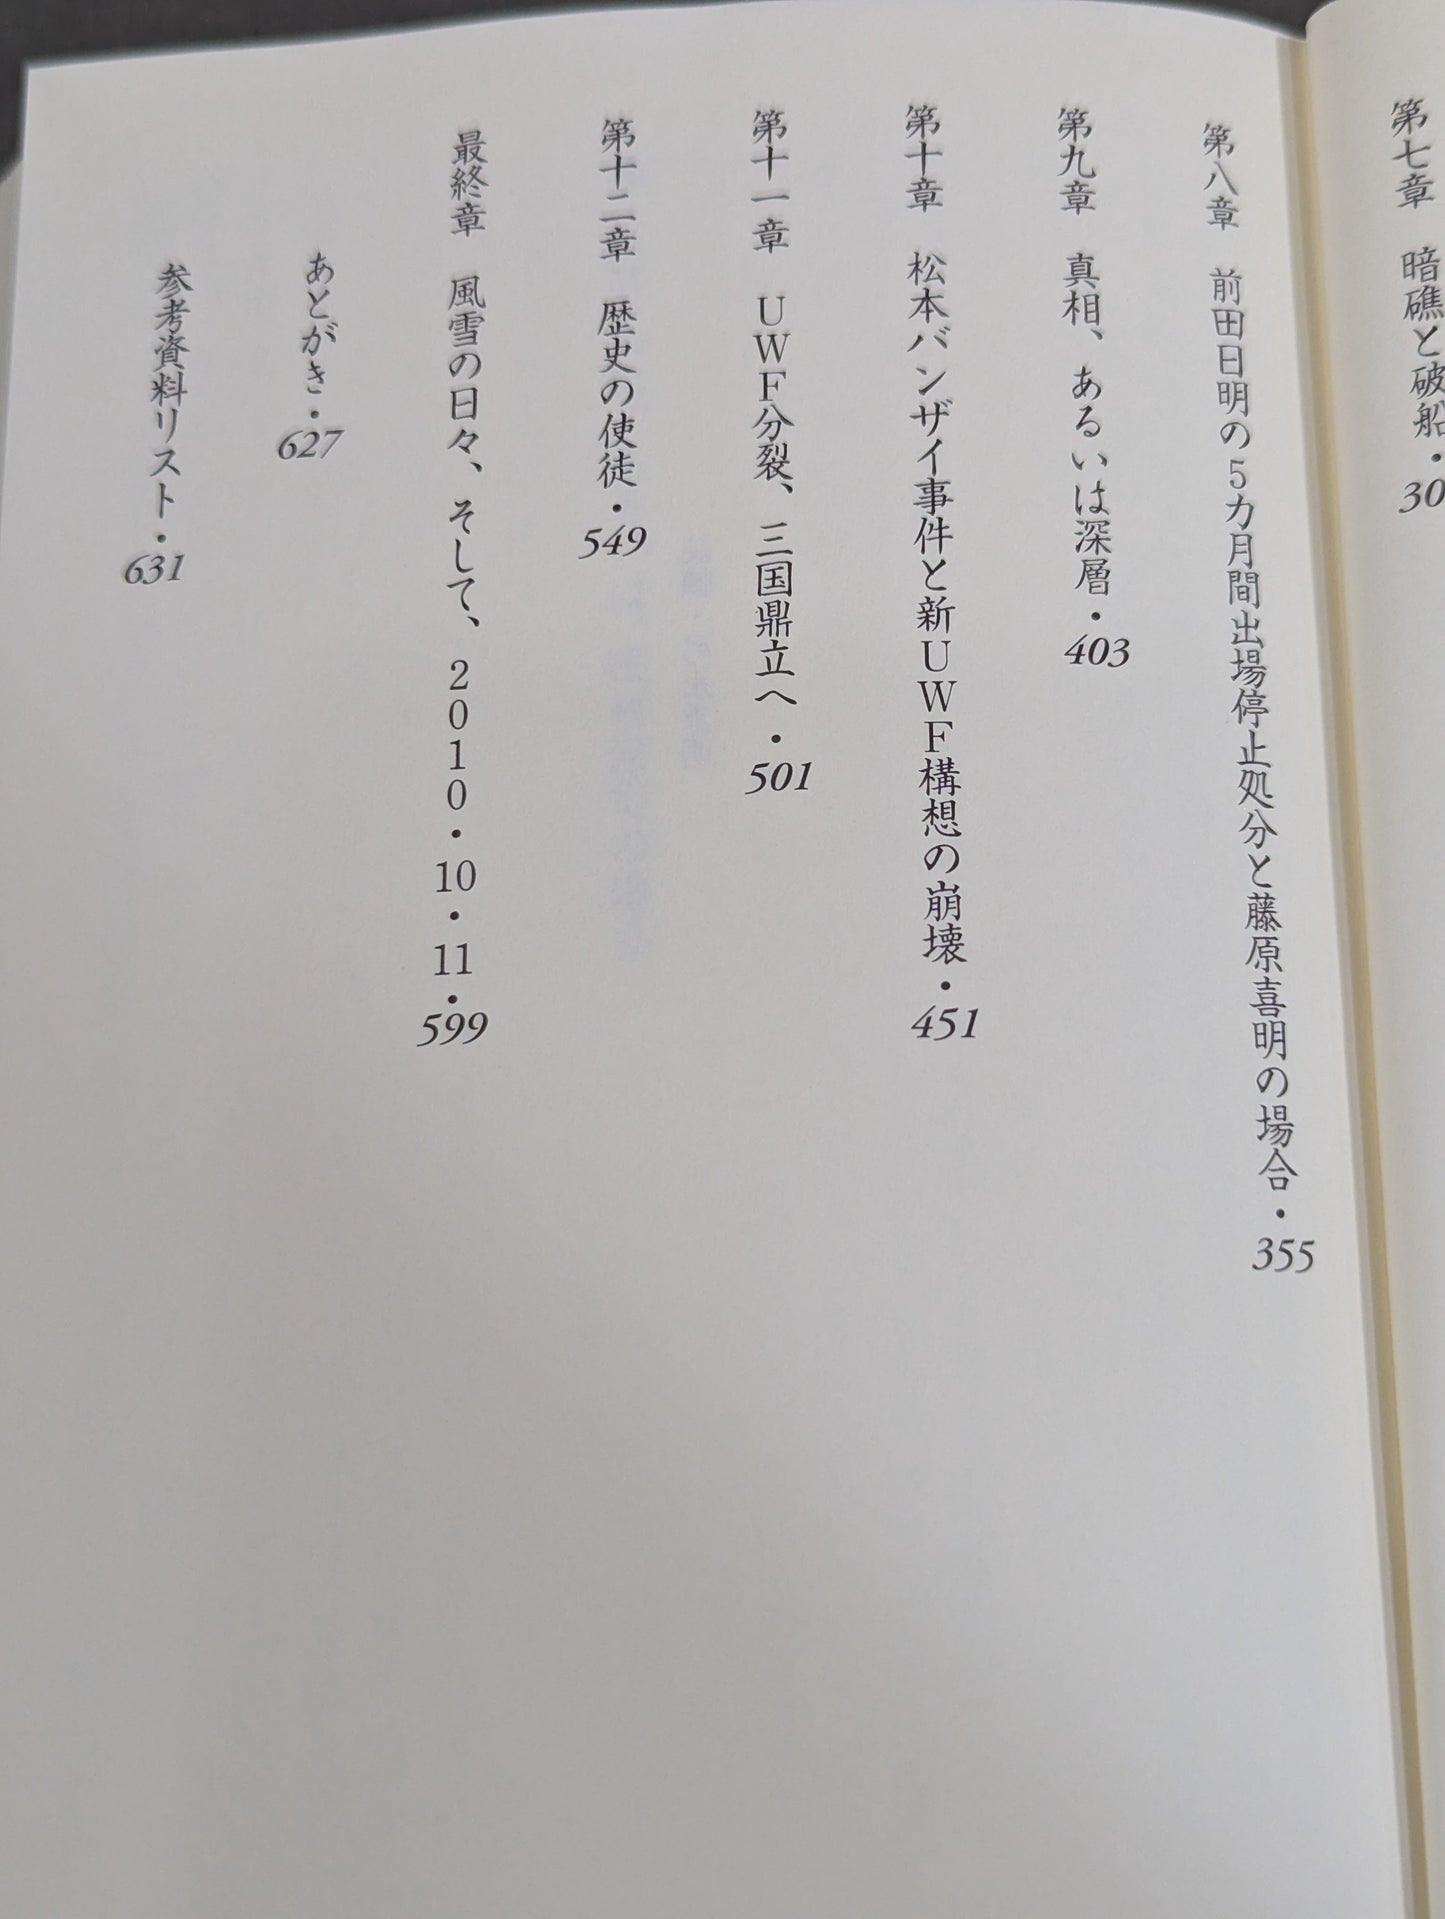 第七章　暗礁と破船・30
第八章　前田日明の5カ月間出場停止処分と藤原喜明の場合・355
第九章　真相、あるいは深層・403
第十章　松本バンザイ事件と新UWF構想の崩壊・451
第十一章　UWF分裂、三国鼎立へ・501
第十二章　歴史の使徒・549
最終章　風雪の日々、そして、2010・10・11・599
あとがき・627
参考資料リスト・631